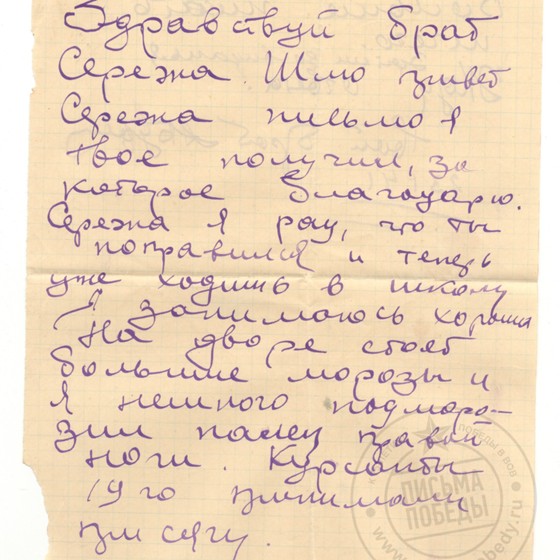 Здравствуй брат
Сережа. Шлю привет
Сережа письмо я
твое получил, за
которое благодарю.
Сережа я рад, что ты
поправился и теперь
уже ходишь в школу
Я занимаюсь хорошо
На дворе стоят
большие морозы и
я немного подморо-
зил палец правой
ноги. Курсанты
19го принимали
присягу.
ПИСЬМА
ПОБЕДЫ